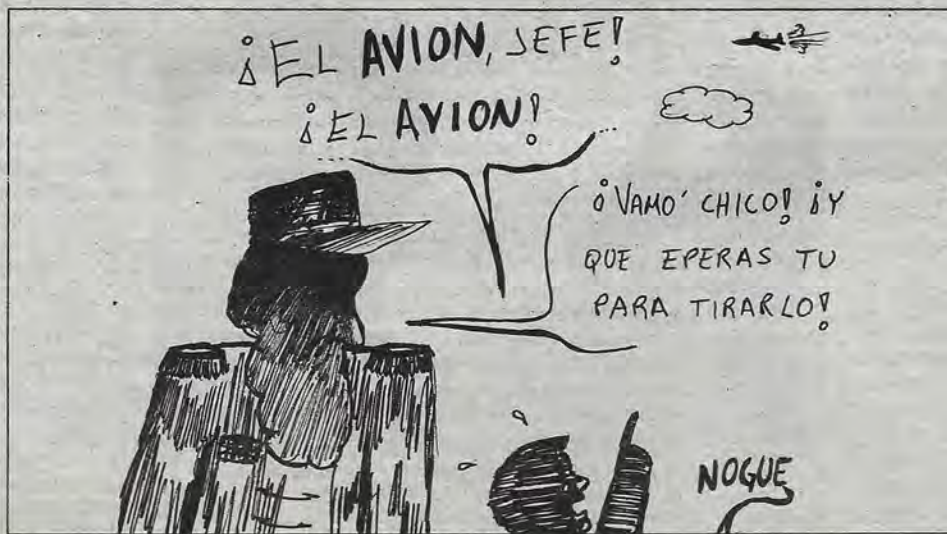 ¡EL AVION, JEFE!
¡EL AVION!
¡VAMO' CHICO! ¡Y
QUE EPERAS TU
PARA TIRARLO!
NOGUE